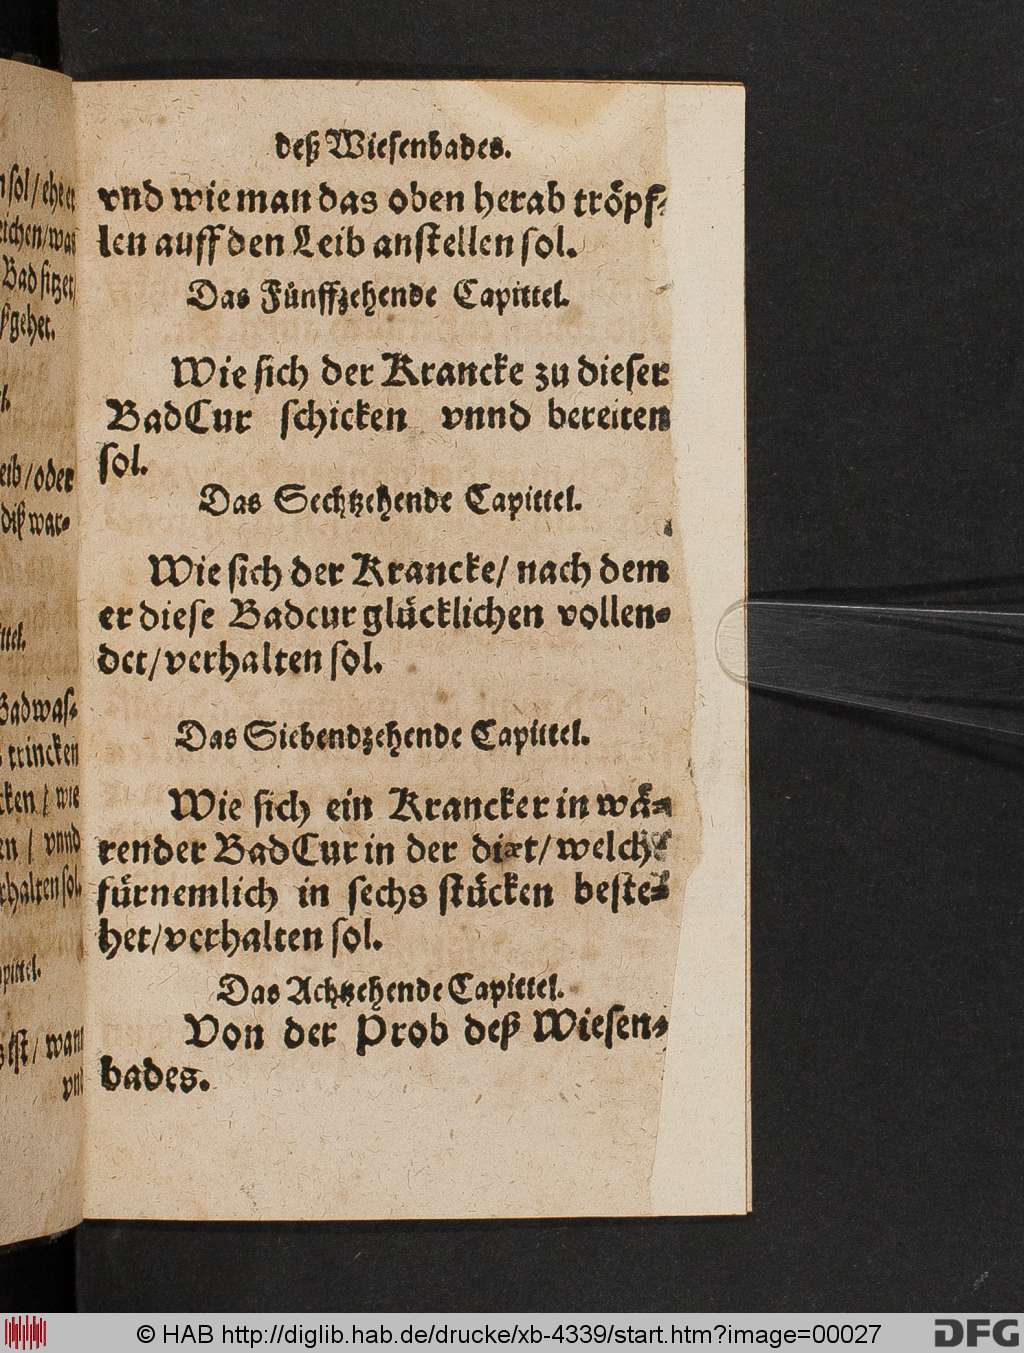 deß Wiesenbades.
vnd wie man das oben herab tröpf-
len auff den Leib anstellen sol.
Das Fünffzehende Capittel.
Wie sich der Krancke zu dieser
BadCur schicken vnnd bereiten
sol.
Das Sechtzehende Capittel.
Wie sich der Krancke/ nach dem
er diese Badcur glücklichen vollen-
det/ verhalten sol.
Das Siebendzehende Capittel.
Wie sich ein Krancker in wä-
render BadCur in der diæt/ welche
fürnemlich in sechs stücken beste-
het/ verhalten sol.
Das Achtzehende Capittel.
Von der Prob deß Wiesen-
bades.
sol/ ehe er
Bad sitzet/
gehet.
/ oder
war-
Badwas-
trincken
/ wie
/ vnnd
sol.
ist/ wann
© HAB http://diglib.hab.de/drucke/xb-4339/start.htm?image=00027
DFG